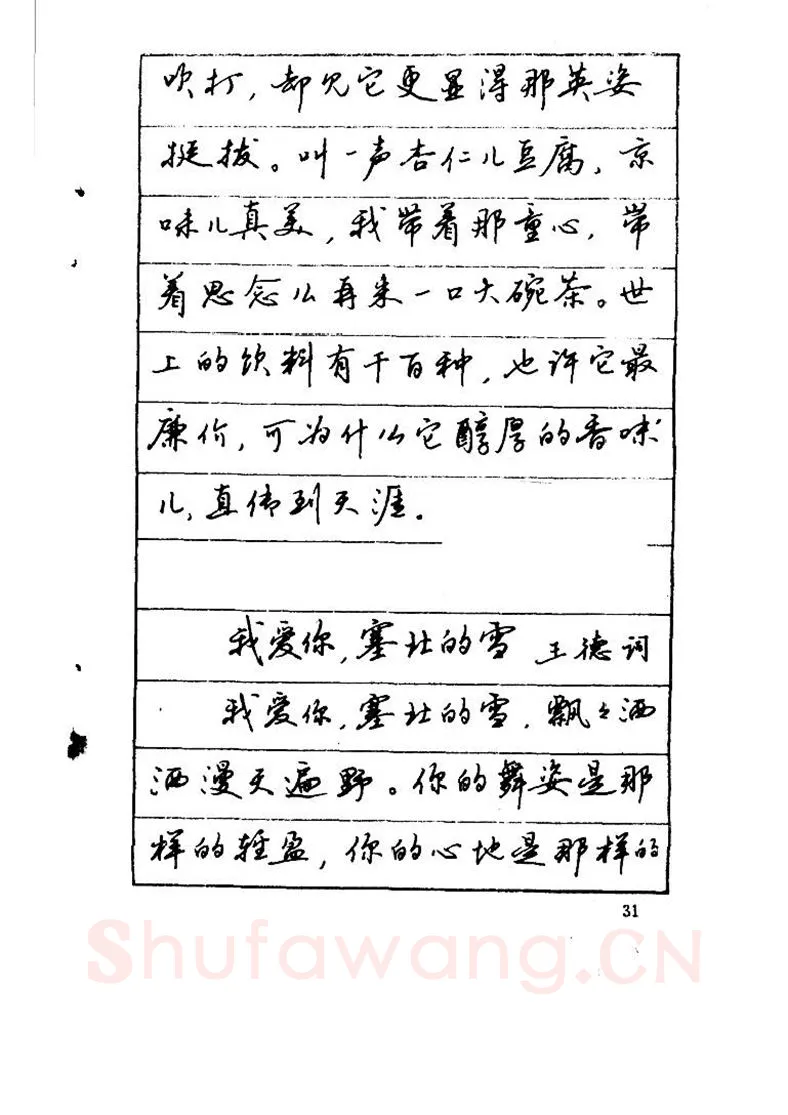 吹打，却见它更显得那英姿
挺拔。叫一声杏仁儿豆腐，京
味儿真美，我带着那童心，带
着思念么再来一口大碗茶。世
上的饮料有千百种，也许它最
廉价，可为什么它醇厚的香味
儿，直传到天涯．
我爱你，塞北的雪 王德词
我爱你，塞北的雪，飘々洒
洒漫天遍野。你的舞姿是那
样的轻盈，你的心地是那样的
31
Shufawang.CN